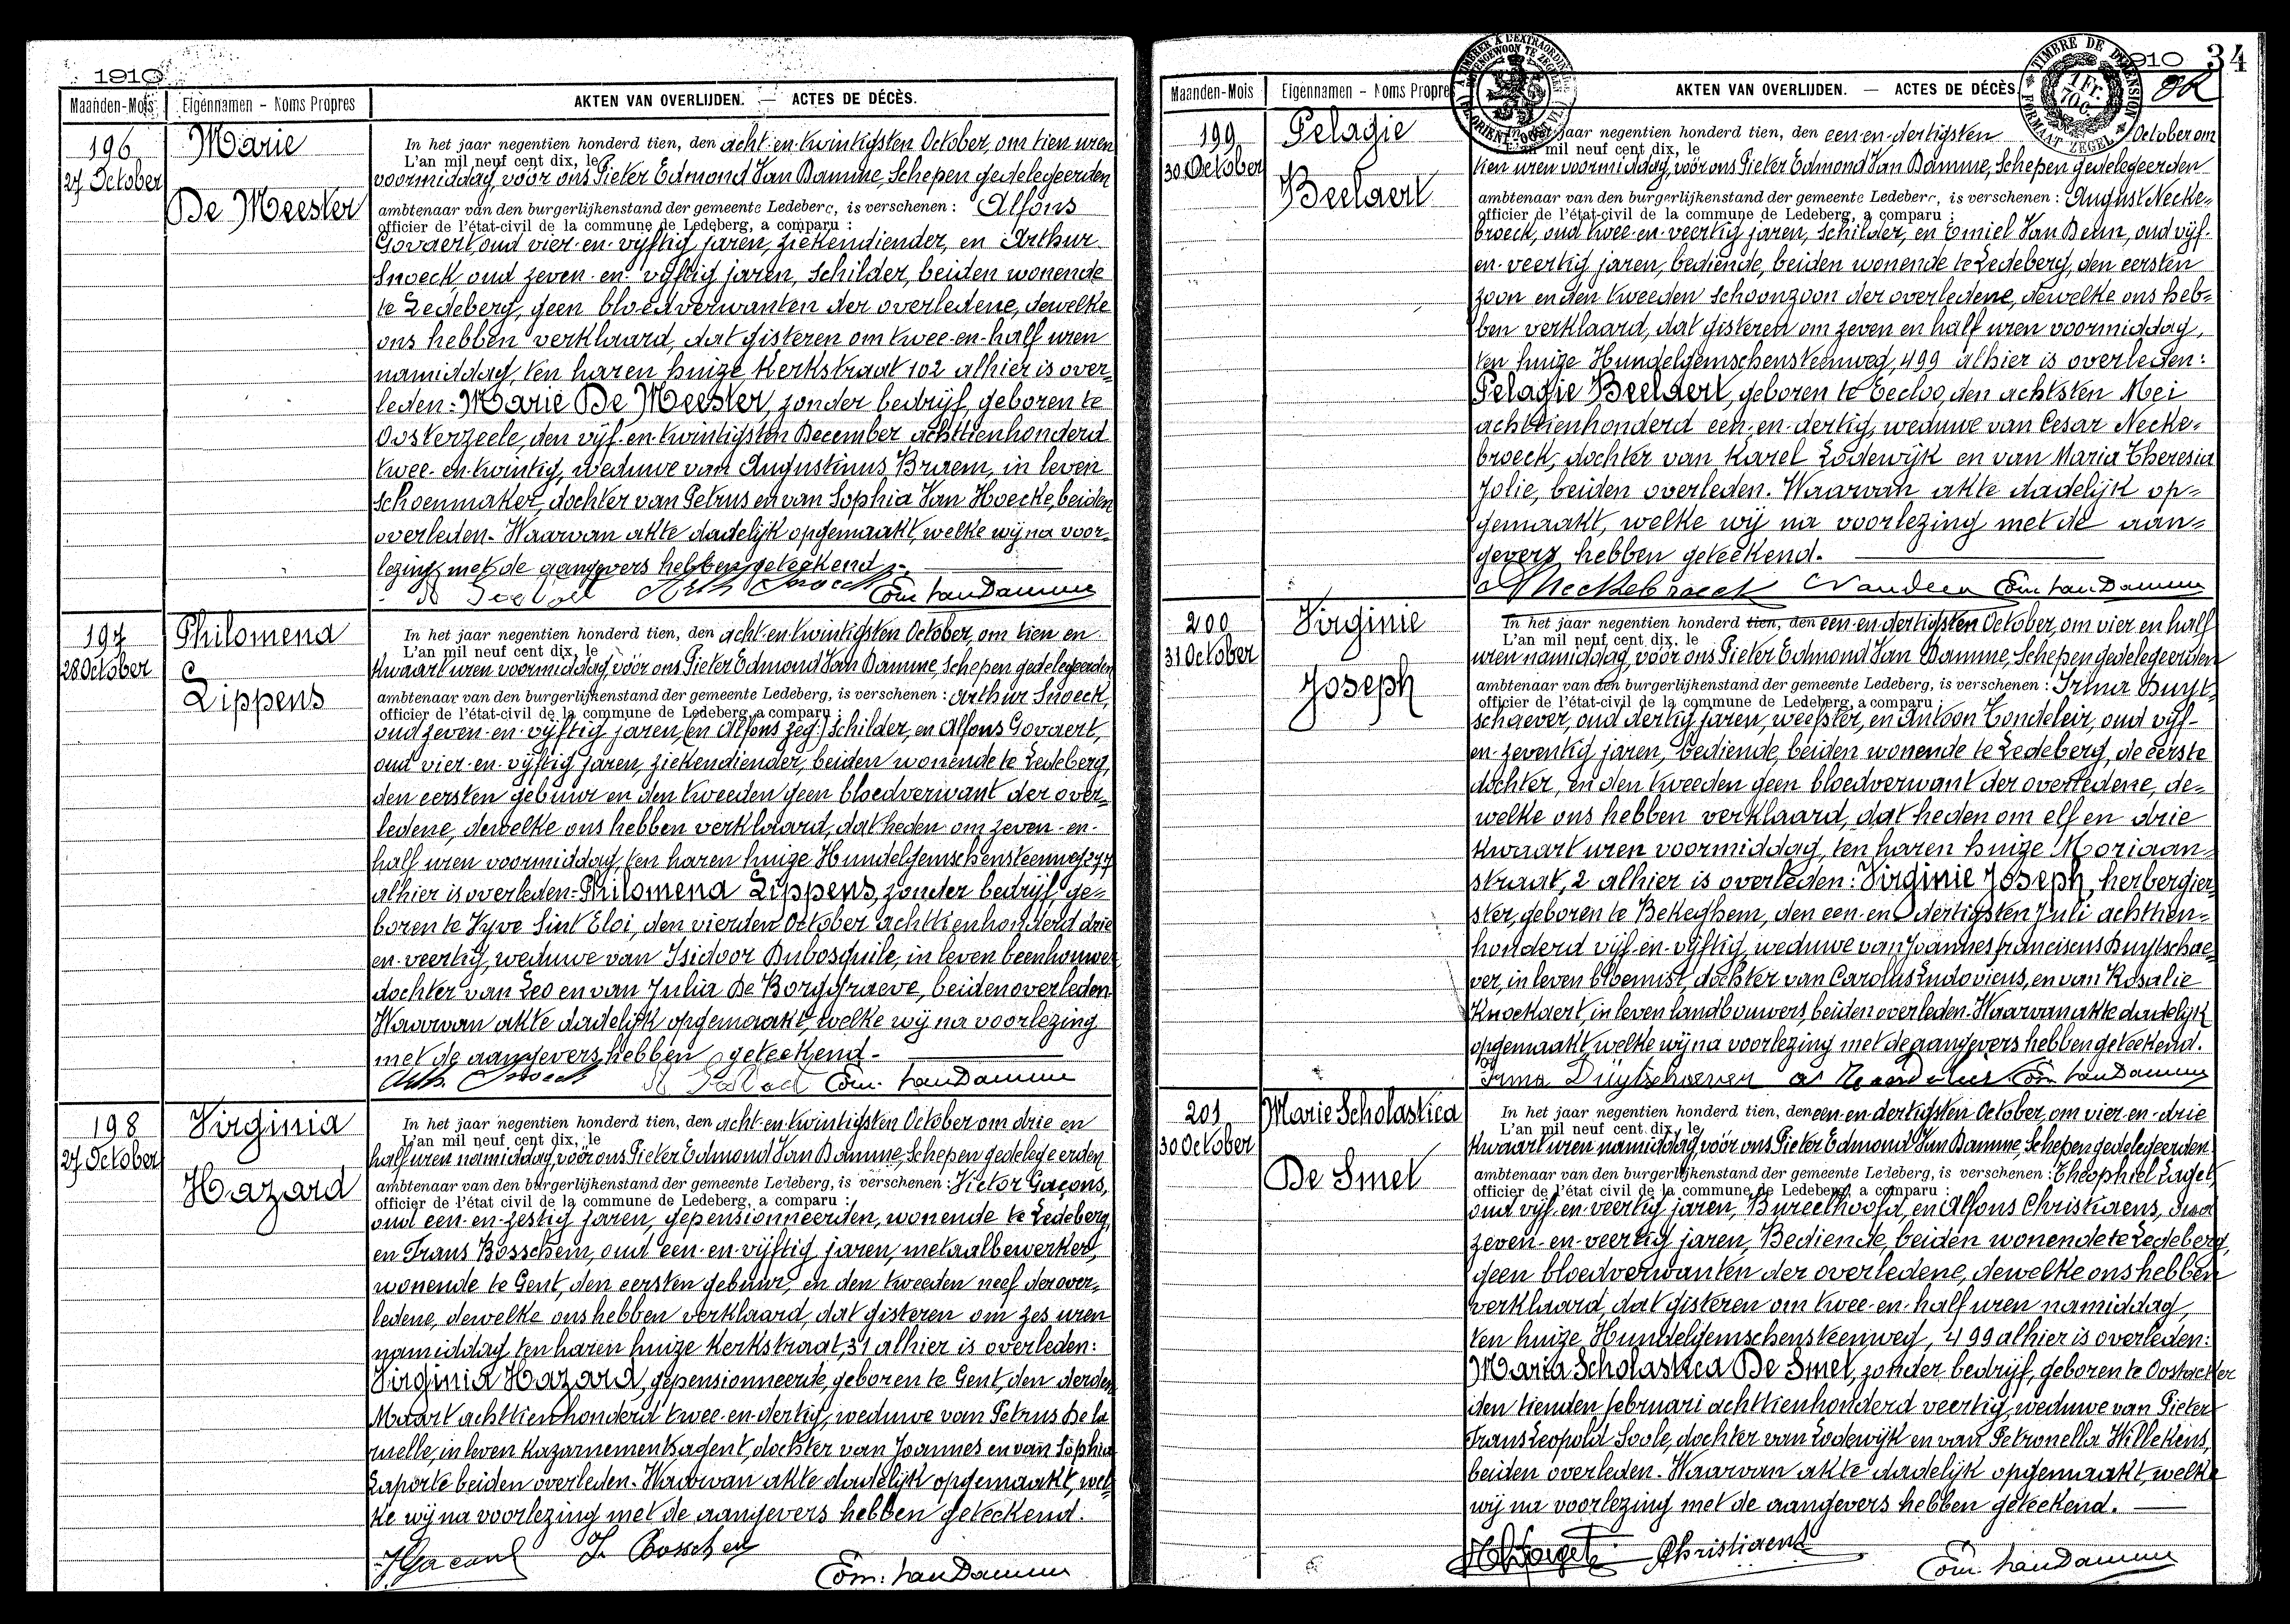 1910
Maanden-Mois Eigennamen - Noms Propres AKTEN VAN OVERLIJDEN. — ACTES DE DÉCÈS.
196
27 October
Marie
De Meester
In het jaar negentien honderd tien, den acht-en-twintigsten October, om tien uren
L'an mil neuf cent dix, le
voormiddag vóór ons Pieter Edmond Van Damme, Schepen gedelegeerden
ambtenaar van den burgerlijkenstand der gemeente Ledeberg, is verschenen : Alfons
officier de l'état-civil de la commune de Ledeberg, a comparu :
Govaert, oud vier-en-vijftig jaren, ziekendiender, en Arthur
Snoeck oud zeven-en-vijftig jaren, Schilder, beiden wonende
te Ledeberg, geen bloedverwanten der overledene, dewelke
ons hebben verklaard, dat gisteren om twee-en-half uren
namiddag, ten haren huize Kerkstraat 102 alhier is over-
leden: Marie De Meester, zonder bedrijf, geboren te
Oosterzeele, den vijf-en-twintigsten December achttienhonderd
twee-en-twintig, weduwe van Augustinus Braem, in leven
schoenmaker, dochter van Petrus en van Sophia Van Hoecke, beiden
overleden. Waarvan akte dadelijk opgemaakt, welke wij na voor-
lezing met de aangevers hebben geteekend.
Arth Snoeck Edm. Van Damme
197
28 October
Philomena
Lippens
In het jaar negentien honderd tien, den acht-en-twintigsten October, om tien en
L'an mil neuf cent dix, le
kwaart uren voormiddag, vóór ons Pieter Edmond Van Damme, Schepen gedelegeerden
ambtenaar van den burgerlijkenstand der gemeente Ledeberg, is verschenen : Arthur Snoeck,
officier de l'état-civil de la commune de Ledeberg, a comparu :
oud zeven-en-vijftig jaren, (en Alfons zeg.) Schilder, en Alfons Govaert,
oud vier-en-vijftig jaren, ziekendiender, beiden wonende te Ledeberg,
den eersten gebuur en den tweeden geen bloedverwant der over-
ledene, dewelke ons hebben verklaard, dat heden om zeven-en-
half uren voormiddag, ten haren huize Hundelgemschensteenweg 277
alhier is overleden: Philomena Lippens, zonder bedrijf, ge-
boren te Vyve Sint Eloi, den vierden October achttienhonderd drie
en-veertig, weduwe van Isidoor Dubosquile, in leven beenhouwer
dochter van Leo en van Julia De Borggraeve, beiden overleden.
Waarvan akte dadelijk opgemaakt, welke wij na voorlezing
met de aangevers hebben geteekend.
Arth. Snoeck Edm. Van Damme
198
27 October
Virginia
Hazard
In het jaar negentien honderd tien, den acht-en-twintigsten October om drie en
L'an mil neuf cent dix, le
half uren namiddag, vóór ons Pieter Edmond Van Damme, Schepen gedelegeerden
ambtenaar van den burgerlijkenstand der gemeente Ledeberg, is verschenen : Victor Gaçons,
officier de l'état civil de la commune de Ledeberg, a comparu :
oud een-en-zestig jaren, gepensionneerden, wonende te Ledeberg,
en Frans Bosschem, oud een-en-vijftig jaren, metaalbewerker,
wonende te Gent, den eersten gebuur, en den tweeden neef der over-
ledene, dewelke ons hebben verklaard, dat gisteren om zes uren
namiddag ten haren huize Kerkstraat, 31 alhier is overleden:
Virginia Hazard, gepensionneerde, geboren te Gent, den derden
Maart achttienhonderd twee-en-dertig, weduwe van Petrus De la
ruelle, in leven Kazarnementsagent, dochter van Joannes en van Sophia
Laporte beiden overleden. Waarvan akte dadelijk opgemaakt, wel-
ke wij na voorlezing met de aangevers hebben geteekend.
Edm. Van Damme
1910 34
Maanden-Mois Eigennamen - Noms Propres AKTEN VAN OVERLIJDEN. — ACTES DE DÉCÈS
TIMBRE DE DIMENSION
FORMAAT ZEGEL
1 Fr. 70 c.
199
30 October
Pelagie
Beelaert
In het jaar negentien honderd tien, den een-en-dertigsten October om
L'an mil neuf cent dix, le
tien uren voormiddag, vóór ons Pieter Edmond Van Damme, Schepen gedelegeerden
ambtenaar van den burgerlijkenstand der gemeente Ledeberg, is verschenen : August Necke-
officier de l'état-civil de la commune de Ledeberg, a comparu :
broeck, oud twee-en-veertig jaren, Schilder, en Emiel Van Deun, oud vijf-
en-veertig jaren, bediende, beiden wonende te Ledeberg, den eersten
zoon en den tweeden schoonzoon der overledene, dewelke ons heb-
ben verklaard, dat gisteren om zeven en half uren voormiddag,
ten huize Hundelgemschensteenweg, 499 alhier is overleden:
Pelagie Beelaert, geboren te Eecloo, den achtsten Mei
achttienhonderd een-en-dertig, weduwe van Cesar Necke-
broeck, dochter van Karel Lodewijk en van Maria Theresia
Jolie, beiden overleden. Waarvan akte dadelijk op-
gemaakt, welke wij na voorlezing met de aan-
gevers hebben geteekend.
A Neckebroeck Edm Van Damme
200
31 October
Virginie
Joseph
In het jaar negentien honderd tien, den een en dertigsten October, om vier en half
L'an mil neuf cent dix, le
uren namiddag vóór ons Pieter Edmond Van Damme, Schepen gedelegeerden
ambtenaar van den burgerlijkenstand der gemeente Ledeberg, is verschenen : Irma Duyt-
officier de l'état-civil de la commune de Ledeberg, a comparu :
schaever, oud dertig jaren, weefster, en Antoon Tondeleir, oud vijf-
en-zeventig jaren, bediende, beiden wonende te Ledeberg, de eerste
dochter, en den tweeden geen bloedverwant der overledene, de-
welke ons hebben verklaard, dat heden om elf en drie
kwaart uren voormiddag, ten haren huize Moriaan-
straat, 2 alhier is overleden: Virginie Joseph, herbergier-
ster, geboren te Bekeghem, den een-en-dertigsten Juli achttien-
honderd vijf-en-vijftig, weduwe van Joannes Franciscus Duytschae-
ver, in leven bloemist, dochter van Carolus Ludovicus, en van Rosalie
Knockaert, in leven landbouwers, beiden overleden. Waarvan akte dadelijk
opgemaakt, welke wij na voorlezing met de aangevers hebben geteekend.
Irma Duytschaever Edm Van Damme
201
30 October
Marie Scholastica
De Smet
In het jaar negentien honderd tien, den een-en-dertigsten October, om vier-en-drie
L'an mil neuf cent dix, le
kwaart uren namiddag, vóór ons Pieter Edmond Van Damme, Schepen gedelegeerden
ambtenaar van den burgerlijkenstand der gemeente Ledeberg, is verschenen : Theophiel
officier de l'état civil de la commune de Ledeberg, a comparu :
oud vijf-en-veertig jaren, Bureelhoofd, en Alfons Christiaens, oud
zeven-en-veertig jaren, Bediende, beiden wonende te Ledeberg,
geen bloedverwanten der overledene, dewelke ons hebben
verklaard, dat gisteren om twee-en-half uren namiddag,
ten huize Hundelgemschensteenweg, 499 alhier is overleden:
Maria Scholastica De Smet, zonder bedrijf, geboren te Oostacker
den tienden Februari achttienhonderd veertig, weduwe van Pieter
Frans Leopold Soole, dochter van Lodewijk en van Petronella Willekens,
beiden overleden. Waarvan akte dadelijk opgemaakt, welke
wij na voorlezing met de aangevers hebben geteekend.
Christiaens Edm. Van Damme